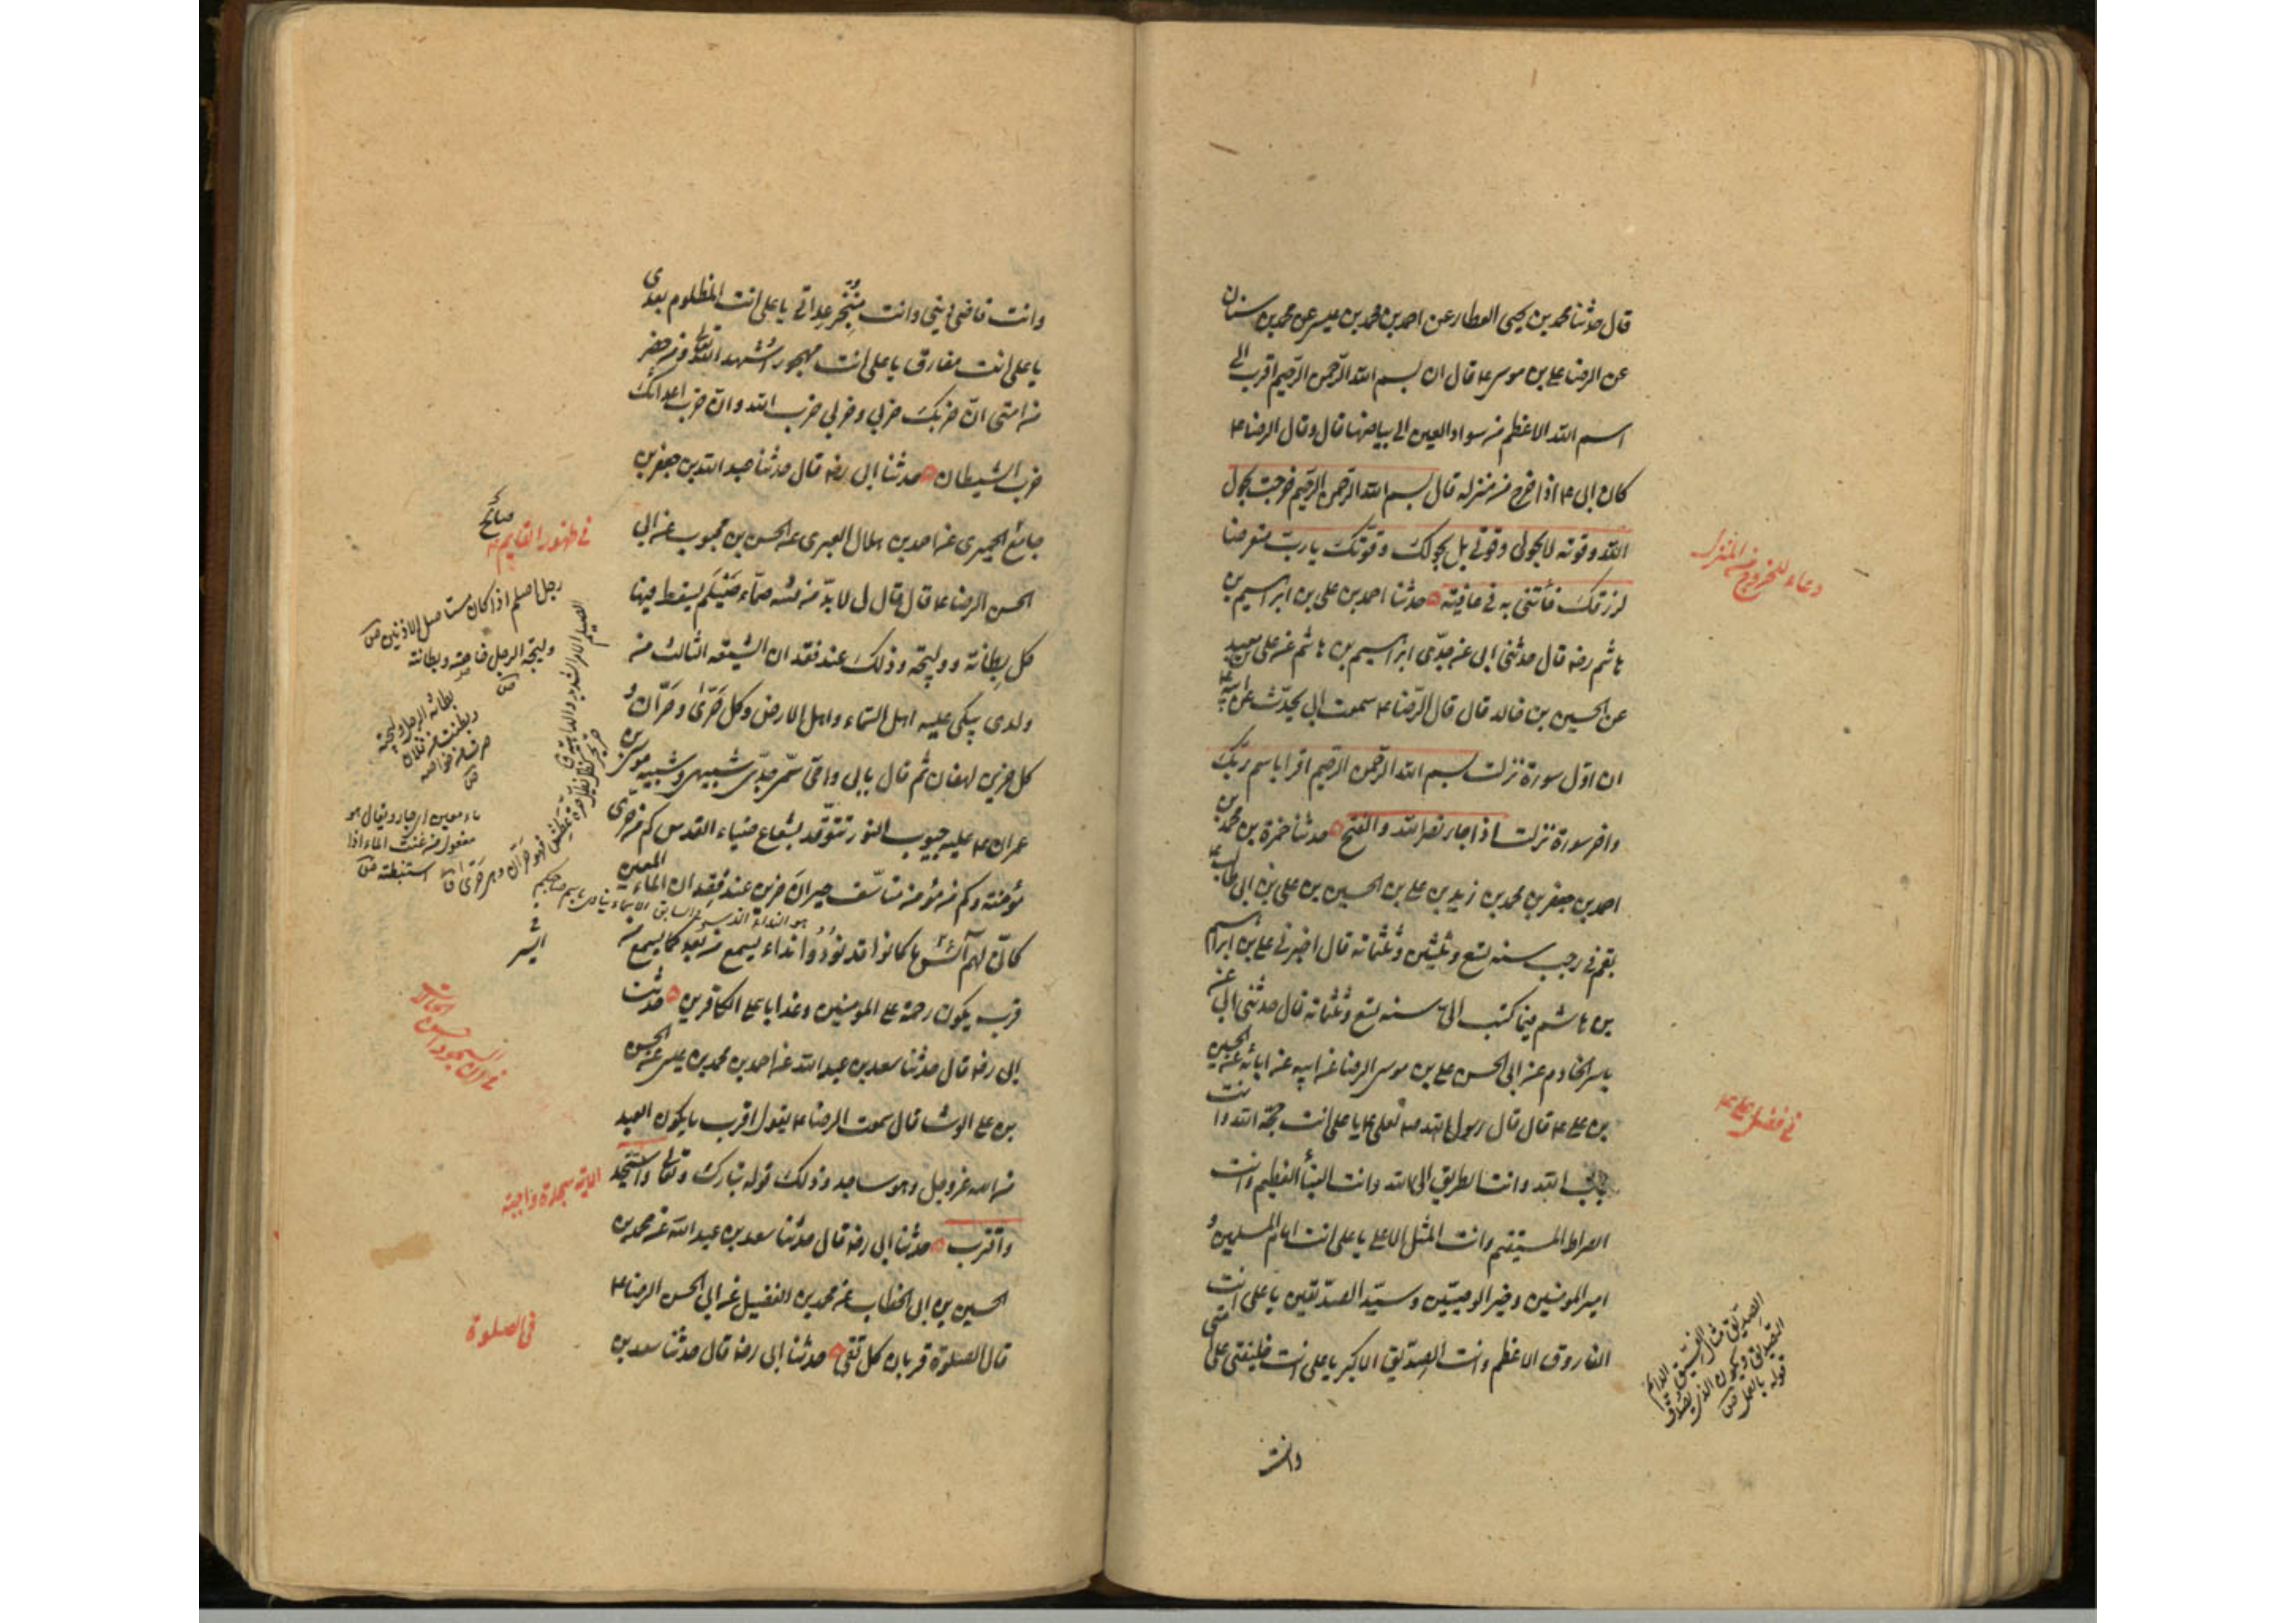 قال حدثنا محمد بن يحيى العطار عن احمد بن محمد بن عيسى عن محمد بن سنان
عن الرضا علي بن موسى ع قال ان بسم الله الرّحمن الرّحيم اقرب الى
اسم الله الاعظم من سواد العين الى بياضها قال وقال الرضا ع
كان ابى ع اذا خرج من منزله قال بسم الله الرحمن الرحيم خرجت بحول
الله وقوته لا بحولى وقوتى بل بحولك وقوتك يا ربّ متعرضا
لرزقك فأتنى به فى عافية حدثنا احمد بن على بن ابراهيم بن
هاشم رضه قال حدثنى ابى عن جدّى ابراهيم بن هاشم عن على بن معبد
عن الحسين بن خالد قال قال الرّضا ع سمعت ابى يحدّث عن ابيه ع
ان اوّل سورة نزلت بسم الله الرّحمن الرّحيم اقرا باسم ربّك
واخر سورة نزلت اذا جاء نصر الله والفتح حدثنا حمزة بن محمد بن
احمد بن جعفر بن محمد بن زيد بن على بن الحسين بن على بن ابى طالب ع
بقم فى رجب سنه تسع وثلثين وثلثمائه قال اخبرنى على بن ابراهيم
بن هاشم فيما كتب الىّ سنه تسع وثلثمائه قال حدثنى ابى عن
ياسر الخادم عن ابى الحسن على بن موسى الرضا عن ابيه عن ابائه عن الحسين
بن على ع قال قال رسول الله صه لعلى ع يا على انت حجّة الله وانت
باب الله وانت الطريق الى الله وانت النبأ العظيم وانت
الصراط المستقيم وانت المثل الاعلى يا على انت امام المسلمين و
امير المومنين وخير الوصيّين وسيّد الصدّيقين يا على انت
الفاروق الاعظم وانت الصدّيق الاكبر يا على انت خليفتى على امتى
وانت
دعاء للخروج من المنزل
فى فضل على ع
الصديق مثال الفسّيق الدائم
التصديق ويكون الذى يصدق
قوله بالعمل ص
وانت قاضى دينى وانت منجز عداتى يا على انت المظلوم بعدى
يا على انت مفارق يا على انت مهجور اشهد الله تعالى ومن حضر
من امتى انّ حزبك حزبى وحزبى حزب الله وانّ حزب اعدائك
حزب الشيطان حدثنا ابى رضه قال حدثنا عبد الله بن جعفر بن
جامع الحميرى عن احمد بن هلال العبرى عن الحسن بن محبوب عن ابى
الحسن الرضا ع قال قال لى لابدّ من فتنه صمّاء صيلم يسقط فيها
كل بطانة ووليجة وذلك عند فقدان الشيعة الثالث من
ولدى يبكى عليه اهل السّماء واهل الارض وكل حَرّى وحَرّان و
كل حزين لهفان ثم قال بابى وامّى سَمىّ جدّى شبيهى وشبيه موسى بن
عمران ع عليه جيوب النور تتوّقد بشعاع ضياء القدس كم من حرّى
مؤمنة وكم من مؤمن متأسّف حيران حزين عند فقدان الماء المعين
كانّى بهم آئس ما كانوا قد نودوا نداء يسمع من بعد كما يسمع من
قرب يكون رحمة على المومنين وعذابا على الكافرين حدثنا
ابى رضه قال حدثنا سعد بن عبد الله عن احمد بن محمد بن عيسى عن الحسن
بن على الوشا قال سمعت الرضا ع يقول اقرب ما يكون العبد
من الله عزّ وجل وهو ساجد وذلك قوله تبارك وتعالى واسجد
واقترب حدثنا ابى رضه قال حدثنا سعد بن عبد الله عن محمد بن
الحسين بن ابى الخطاب عن محمد بن الفضيل عن ابى الحسن الرضا ع
قال الصلوة قربان كل تقى حدثنا ابى رضه قال حدثنا سعد بن
فى ظهور القايم ع
رجل اصلم اذا كان مستاصل الاذنين ص
وليجة الرجل خاصته وبطانته
ص
بطانة الرجل وليجته
ماء معين اى جار ويقال هو
مفعول من عنت الماء اذا
استنبطته ص
فى ان السجود احسن الحالات
الاية سجدة واجبة
فى الصلوة